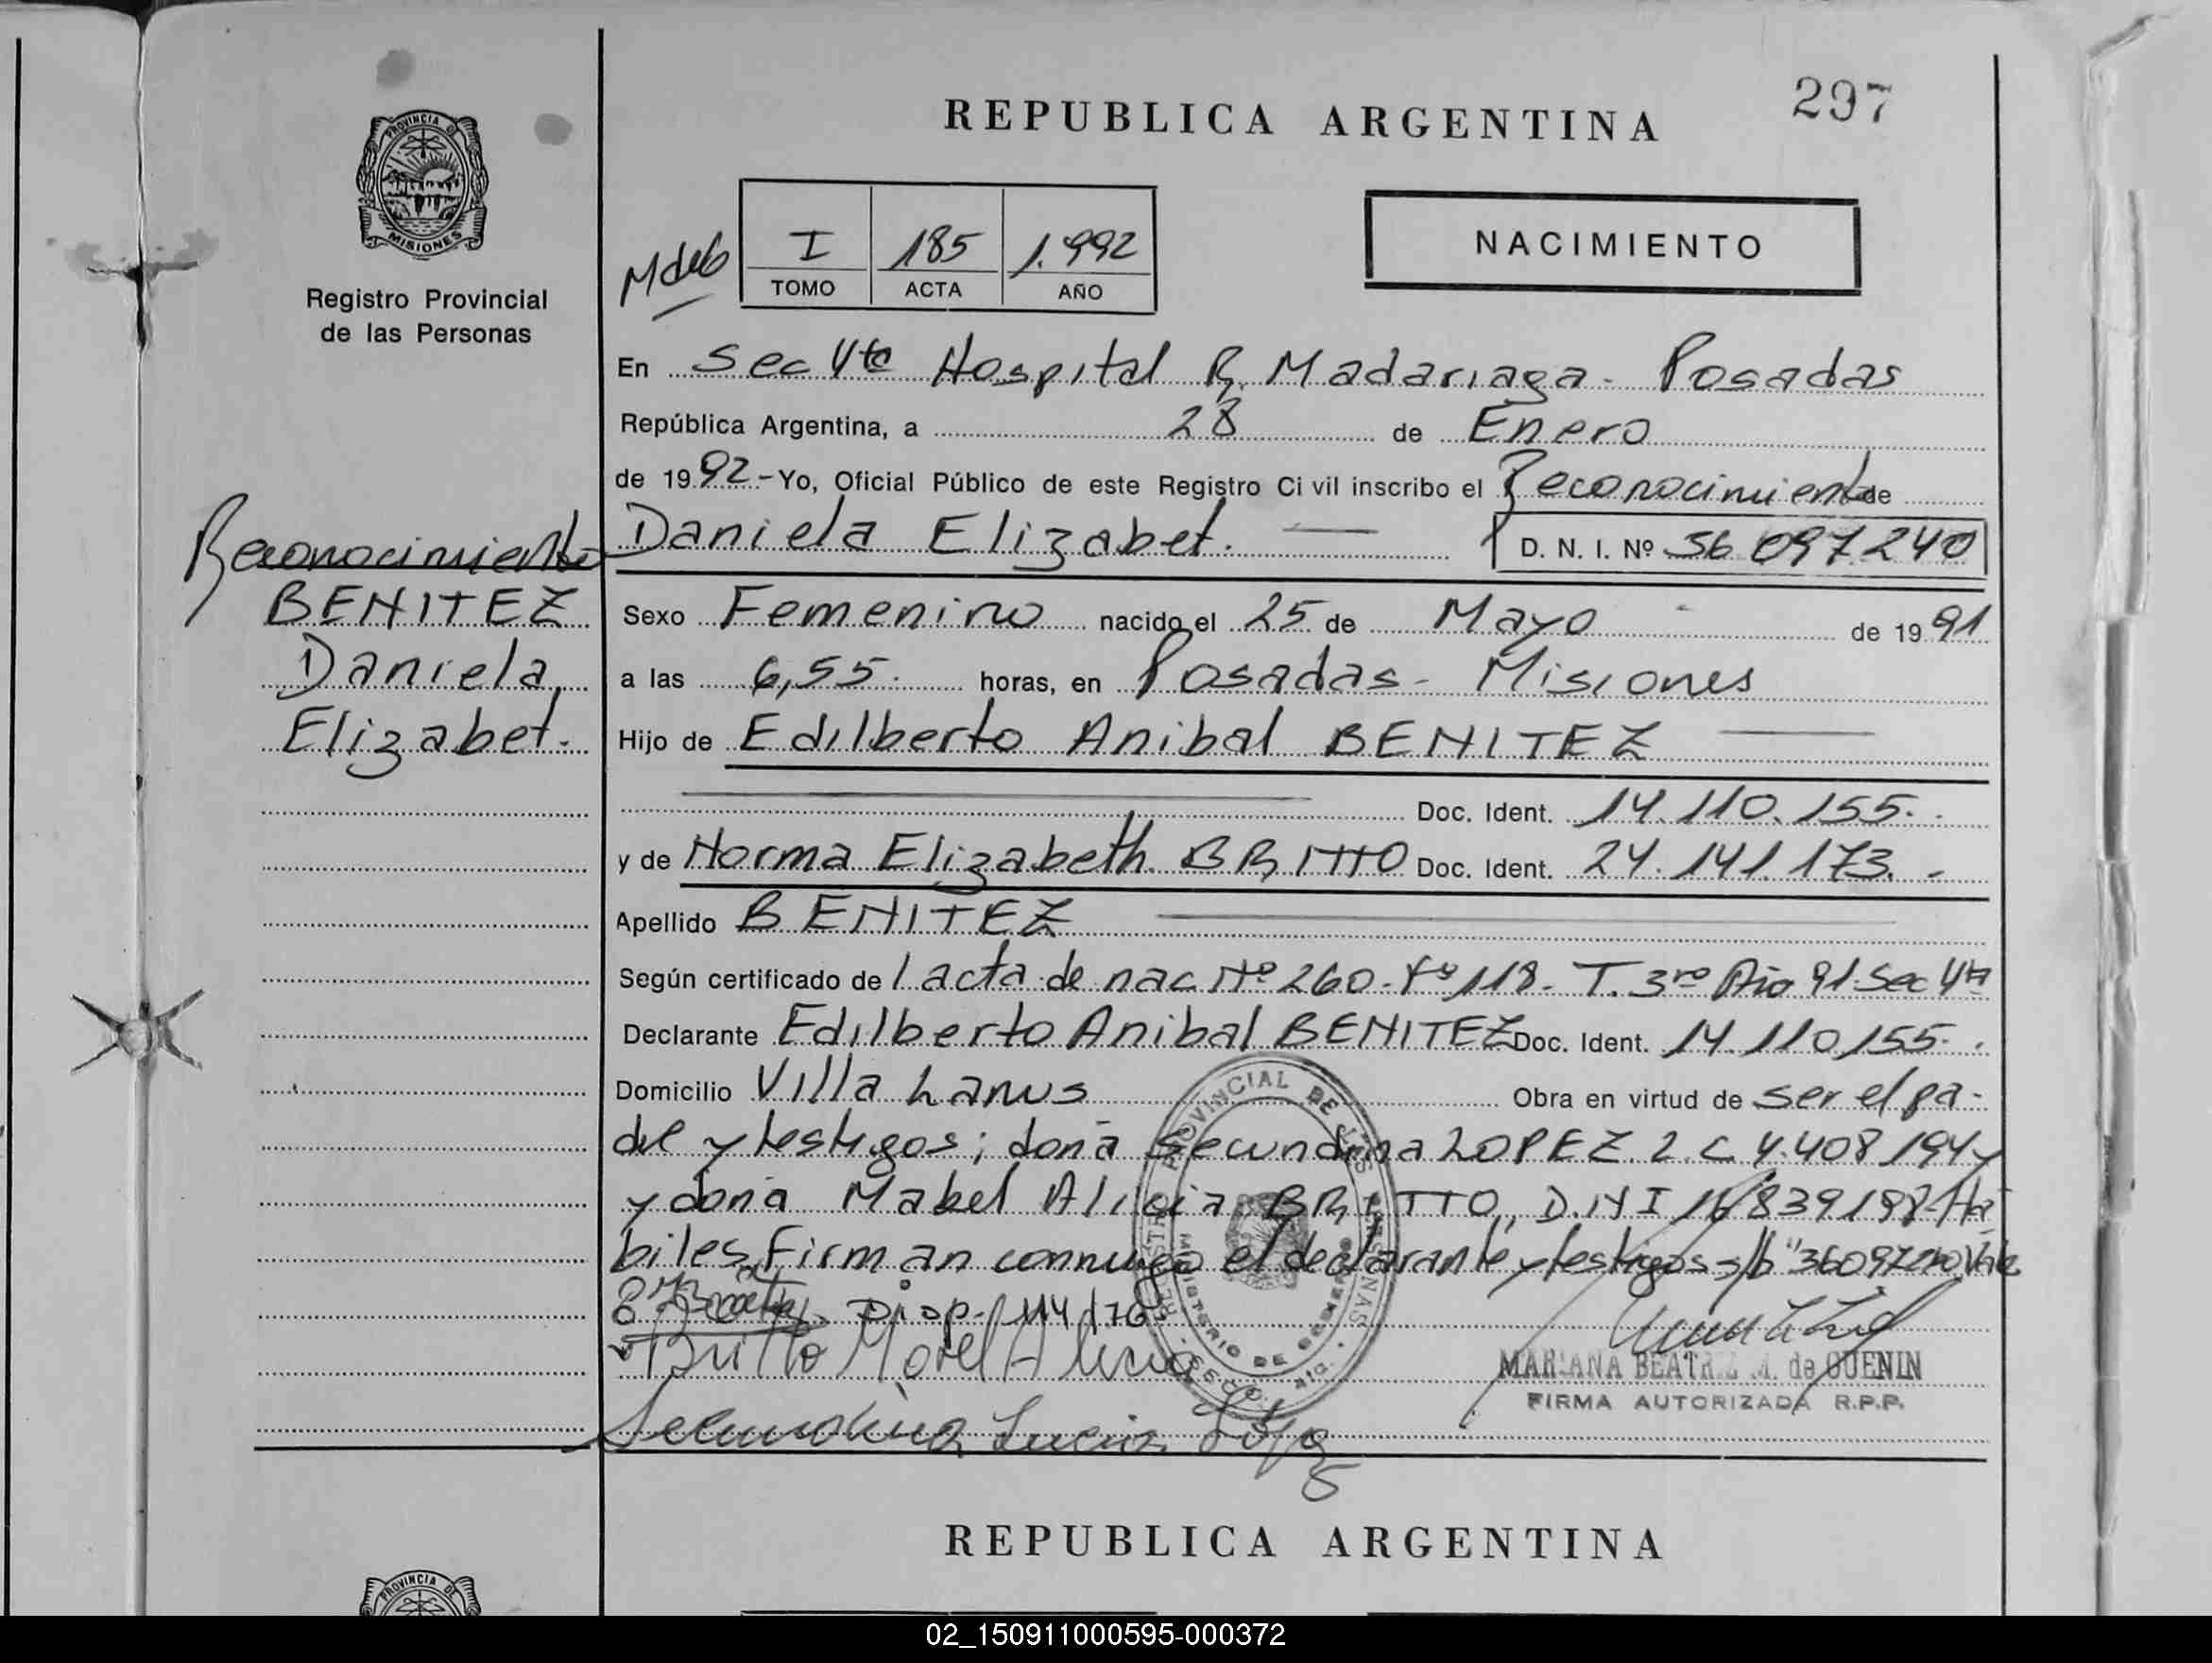 297
REPUBLICA ARGENTINA
PROVINCIA DE
MISIONES
Registro Provincial
de las Personas
I 185 1.992
TOMO ACTA AÑO
NACIMIENTO
En Sec 4ta Hospital R. Madariaga - Posadas
República Argentina, a 28 de Enero
de 1992.- Yo, Oficial Público de este Registro Civil inscribo el Reconocimiento de
Daniela Elizabet. D. N. I. Nº 36 097240
Reconocimiento
BENITEZ
Daniela
Elizabet.
Sexo Femenino nacido el 25 de Mayo de 1991
a las 6,55. horas, en Posadas - Misiones
Hijo de Edilberto Anibal BENITEZ
Doc. Ident. 14.110.155.
y de Norma Elizabeth BRITTO Doc. Ident. 24.141.173.-
Apellido BENITEZ
Según certificado de l acta de nac Nº 260 - Fº 118 - T. 3ro Año 91. Sec 4ta
Declarante Edilberto Anibal BENITEZ Doc. Ident. 14.110.155.
Domicilio Villa Lanus Obra en virtud de ser el pa-
dre y testigos; doña Secundina LOPEZ L.C 4.408.194 y
y doña Mabel Alicia BRITTO, D.N I 16.839.198 - Há
biles, Firman conmigo el declarante y testigos s/b "36097240 Vale
Disp. 114/76
Britto Mabel Alicia
Secundina Lucia López
REGISTRO PROVINCIAL DE LAS PERSONAS
MINISTERIO DE GOBIERNO
MARIANA BEATRIZ M. de GUENIN
FIRMA AUTORIZADA R.P.P.
REPUBLICA ARGENTINA
PROVINCIA DE
02_150911000595-000372